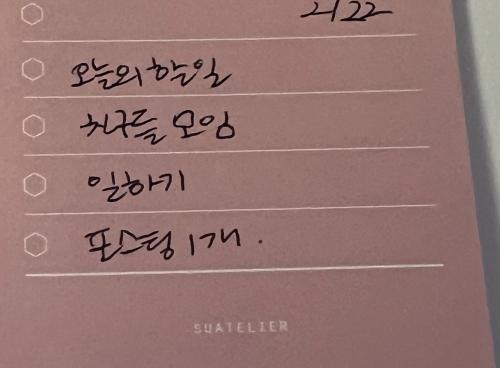 2/22
오늘의 할 일
친구들 모임
일하기
포스팅 1개.
SUATELIER